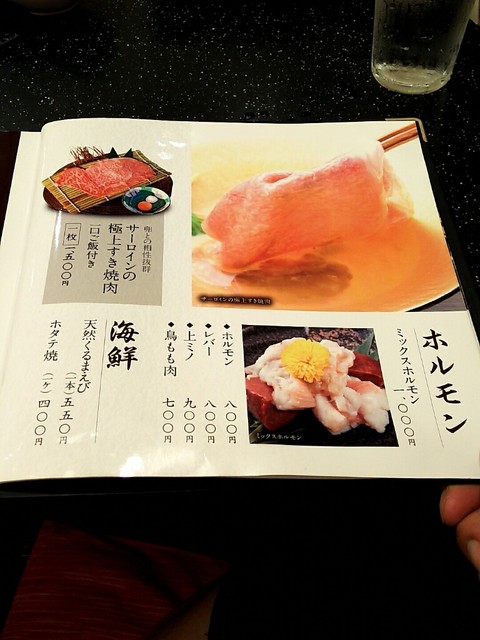 卵との相性抜群
サーロインの
極上すき焼肉
一口ご飯付き
一枚 一、五〇〇円
サーロインの極上すき焼肉
ホルモン
ミックスホルモン
一、〇〇〇円
ミックスホルモン
◆ホルモン 八〇〇円
◆レバー 八〇〇円
◆上ミノ 九〇〇円
◆鳥もも肉 七〇〇円
海鮮
天然くるまえび (一本) 五五〇円
ホタテ焼 (一ケ) 四〇〇円